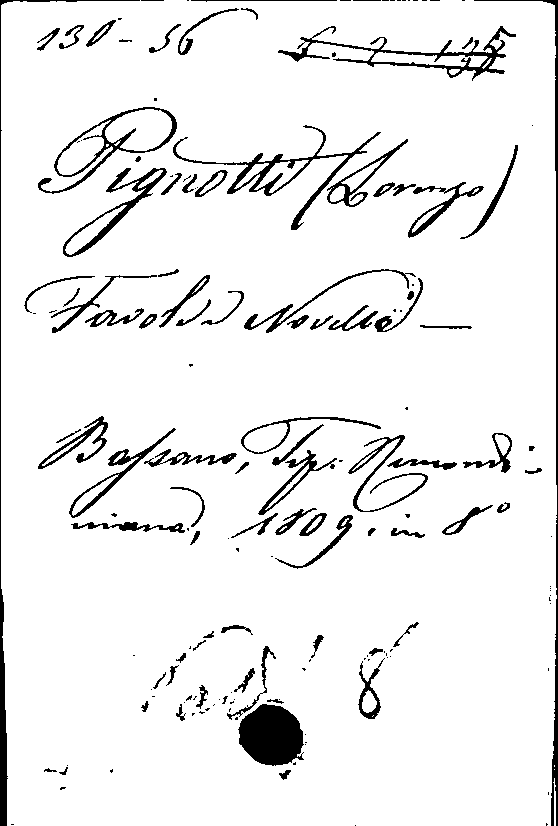 130-56
Pignotti (Lorenzo)
Favole e Novelle —
Bassano, Tip. Remondi-
niana, 1809. in 8°
8